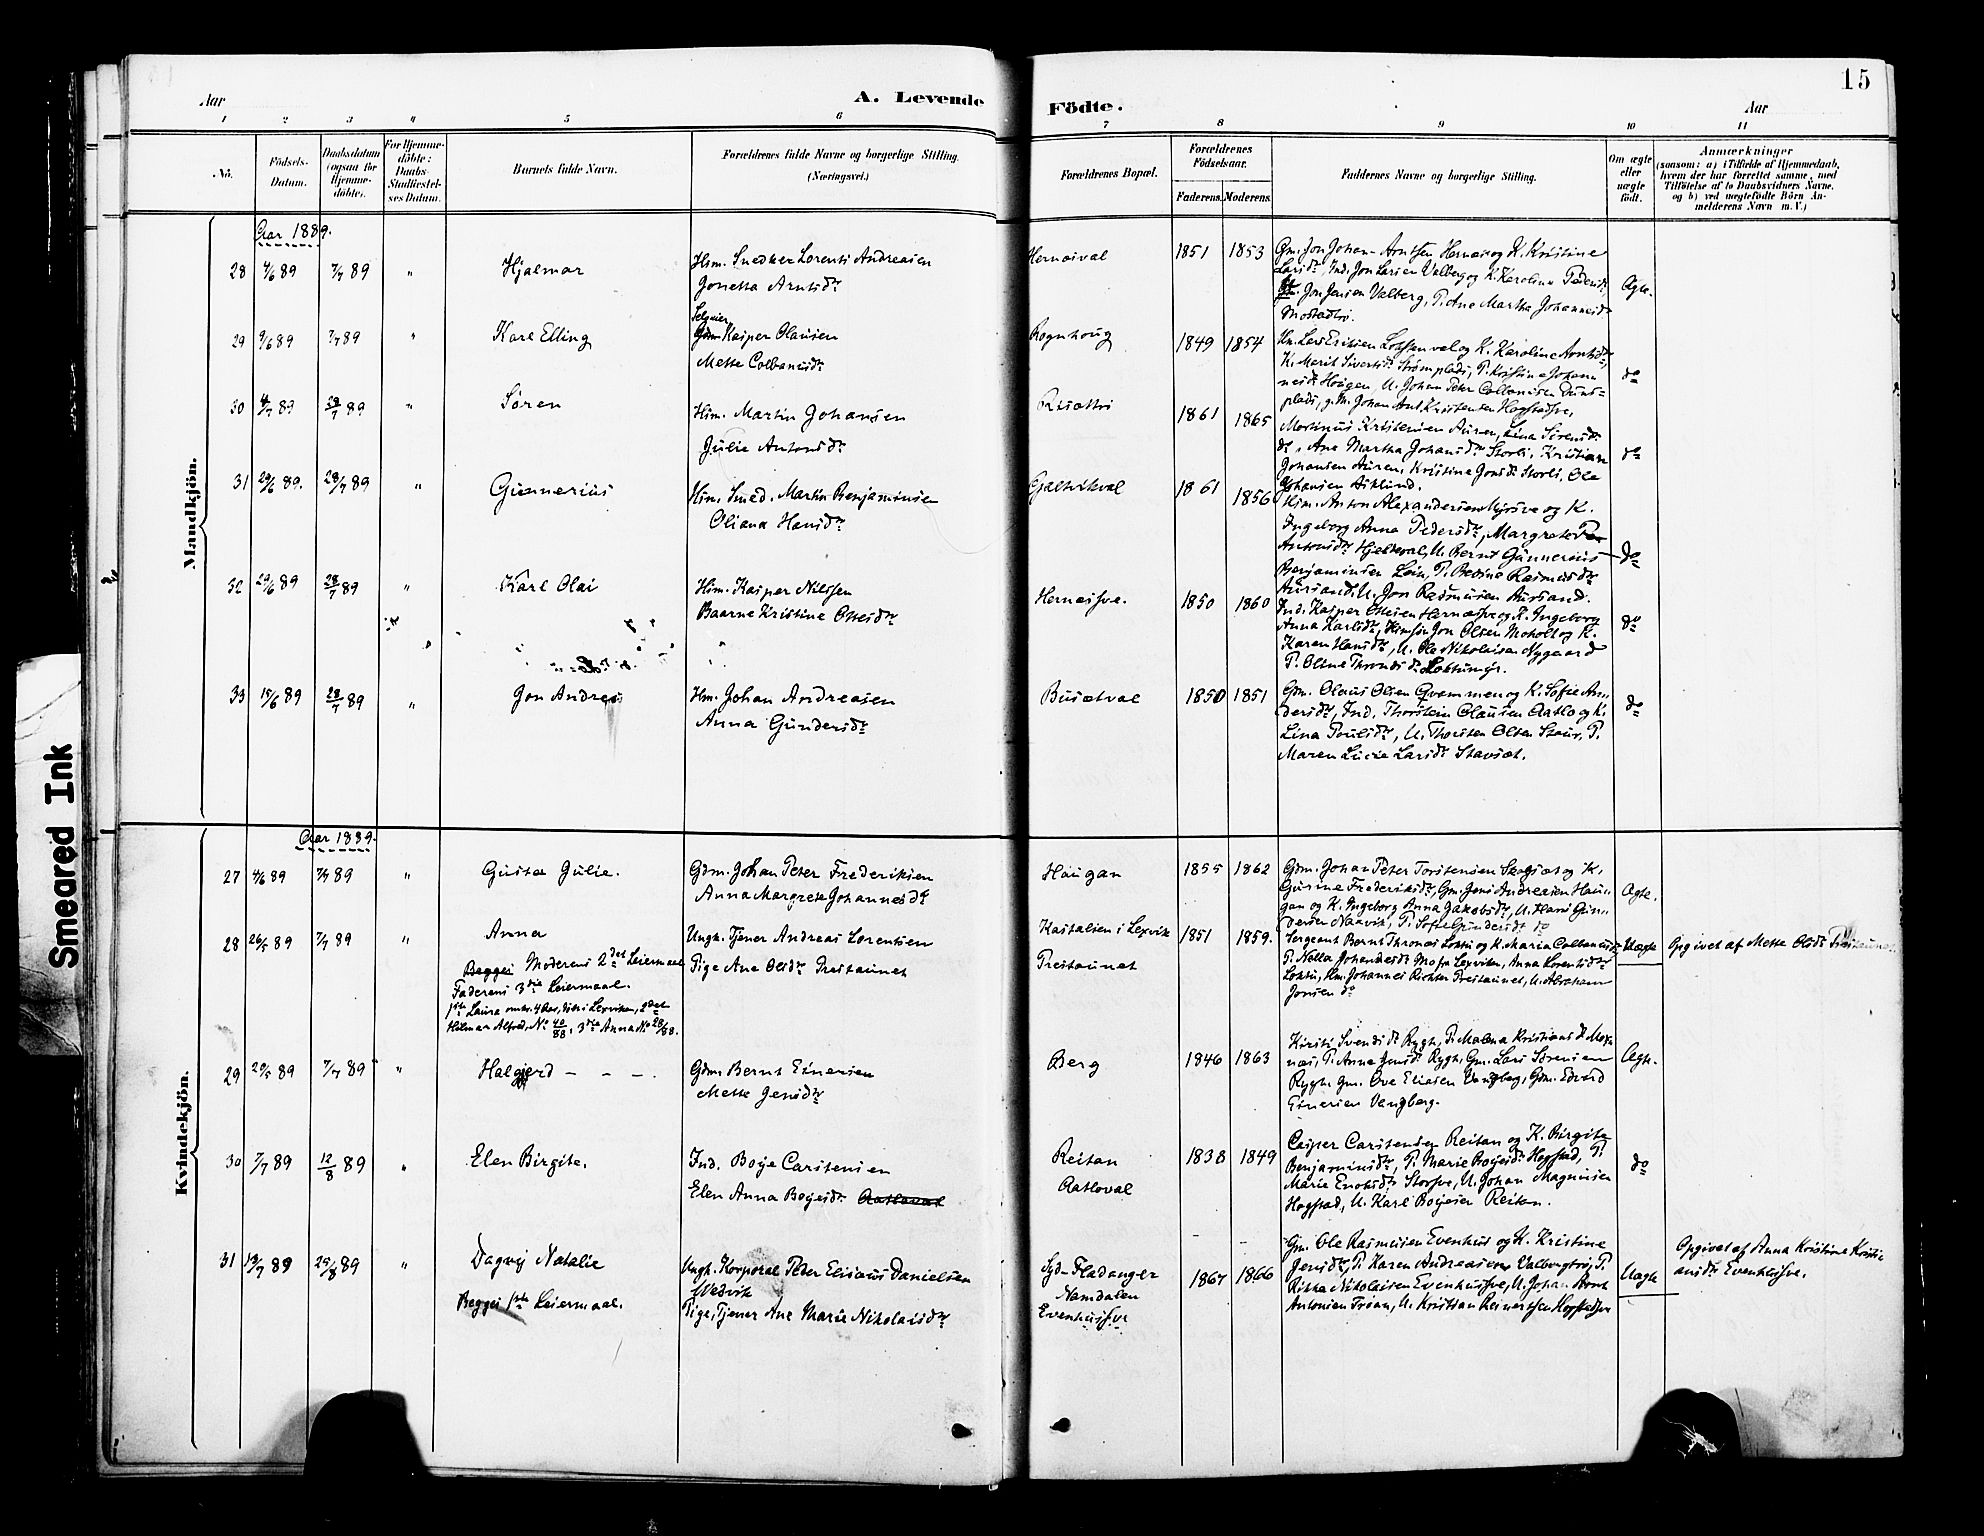 15
Aar
A. Levende Födte.
Aar
1 2 3 4 5 6 7 8 9 10 11
No.
Födsels-
Datum.
Daabsdatum
(ogsaa for
Hjemme-
döbte).
For Hjemme-
döbte:
Daabs-
Stadfæstel-
ses Datum.
Barnets fulde Navn.
Forældrenes fulde Navne og borgerlige Stilling.
(Næringsvei.)
Forældrenes Bopæl.
Forældrenes
Födselsaar.
Faderens. Moderens.
Faddernes Navne og borgerlige Stilling.
Om ægte
eller
uægte
født.
Anmærkninger
(saasom: a) i Tilfælde af Hjemmedaab,
hvem der har forrettet samme, med
Tilföielse af to Daabsvidners Navne,
og b) ved uægtefödte Börn An-
melderens Navn m. V.)
Mandkjön.
Aar 1889.
28 4/6 89 7/7 89 " Hjalmar
Hsm. Snedker Lorents Andreasen
Jonetta Arntsdr
Hernæsval
1851 1853
Gm. Jon Johan Arntsen Hernæs og K. Kristine
Larsdr, Ind. Jon Larsen Valberg og K. Karoline Pedersdr,
Jon Jensen Valberg, P. Ane Martha Johannesdr
Mostadbr.
Ægte.
29 9/6 89 7/7 89 " Karl Elling
Selveier
Gdm. Kasper Olausen
Mette Colbansdr
Rognhoug
1849 1854
Lars Eriksen Loktsenval og K. Karoline Arntsdr,
K. Marit Sivertsdr Strømplads, P. Kristine Johan
nesdr Hougen, U. Johan Peter Colbansen Duns-
plads, g. M. Johan Ant. Kristensen Hogstadsve.
do
30 4/7 89 28/7 89 " Søren
Hsm. Martin Johansen
Julie Antonsdr
Risættri
1861 1865
Martinus Kristensen Auren, Lina Sørensdr
do, Ane Martha Johansdr Storli, Kristian
Johansen Auren, Kristine Jonsdr Storli, Ole
Johansen Asklund.
do
31 20/6 89. 28/7 89 " Gunnerius
Hsm. Smed. Martin Benjaminsen
Oliana Hansdr
Gjælvikval
1861 1856
Hsm. Anton Alexandersen Myrsve og K.
Ingeborg Anna Pedersdr, Margrete
Antonsdr Hjelteval, U. Bernt Gunnerius
Benjaminsen Lein, P. Bedine Rasmusdr
Aursand, U. Jon Rasmusen Aursand.
do
32 20/6 89 28/7 89 " Karl Olai
Hsm. Kasper Nilssen
Baarne Kristine Ottesdr
Hernæssve.
1850 1860
Ind. Kasper Ottesen Hernæssve og K. Ingeborg
Anna Karlsdr, Jon Olsen Moholt og K.
Karen Hansdr, U. Ole Nikolaisen Nygaard
P. Oline Thronds dr. Loktumyr.
do
33 15/6 89 28/7 89 " Jon Andreas
Hsm. Johan Andreasen
Anna Gundersdr
Busætval
1850 1851
Gdm. Olaus Olsen Qvammen og K. Sofie An-
dersdr, Ind. Thorstein Olausen Aatlo og K.
Lina Poulsdr, U. Thorsten Olsen Staur, P.
Maren Lucie Larsdr Stavsæt.
do
Kvindekjön.
Aar 1889.
27 4/6 89 7/7 89 " Gusta Julie.
Gdm. Johan Peter Frederiksen
Anna Margrete Johannesdr
Haugan
1855 1862
Gdm. Johan Peter Torstensen Skogsæt og K.
Gurine Frederiksdr, Gm. Jens Andreasen Hau-
gan og K. Ingeborg Anna Jakobsdr, U. Hans Gun-
dersen Naavik, P. Sofie Gundersdr do
Ægte.
28 26/5 89 7/7 89 " Anna
Begges Moderens 2det Leiermaal
Faderens 3die Leiermaal.
1ste Laura omtr. 4 Aar, døbt i Lexviken, 2det
Hilmar Alfred, No 40/88, 3die Anna No 28/88.
Ungk. Tjener Andreas Lorentsen
Pige Ane Olsdr Prestaunet
Kastalsen i Lexvik
Prestaunet
1851 1859.
Sergeant Bernt Thrones Loktu og K. Maria Colbensdr,
P. Nella Johannesdr Mosse Lexviken, Anna Lorentsdr
Loktu, Hm. Johannes Richter Prestaunet, U. Abraham
Jonsen do
Uægte
Opgivet af Mette Olsdr Prestaunet
29 29/5 89 7/7 89 " Halgjerd - - -.
Gdm. Bernt Einersen
Mette Jensdr
Berg
1846 1863
Kirsti Svendsdr Rygh, P. Malena Kristiansdr Mox
nes, P. Anna Jensdr Rygh, Gm. Lars Sørensen
Rygh, Gm. Ove Eliasen Vangberg, Gdm. Edvard
Einersen Vangberg.
Ægte.
30 7/7 89 12/8 89 " Elen Birgite.
Ind. Boije Carstensen
Elen Anna Boijesdr Aatloval
Reitan
Aatloval
1838 1849
Casper Carstensen Reitan og K. Birgite
Benjaminsdr, P. Marie Boijesdr Hogstad, P.
Marie Enoksdr Storsve, U. Johan Magnusen
Hogstad, U. Karl Boijesen Reitan.
do
31 19/7 89 25/8 89 " Dagny Natalie
Begges 1ste Leiermaal.
Ungk. Korporal Peter Elisæus Danielsen
Utvik
Pige, Tjener Ane Marie Nikolaisdr
Syd Fladanger
Namdalen
Evenhussve
1867 1866
Gm. Ole Rasmusen Evenhus og K. Kristine
Jensdr, P. Karen Andreasen Valbergbrö, P.
Rikka Nikolaisen Evenhussve, U. Johan Arnt
Antonsen Troan, U. Kristian Reinertsen Hogstadsve
Uægte
Opgivet af Anna Kristine Kristi-
ansdr Evenhussve.
Smeared Ink